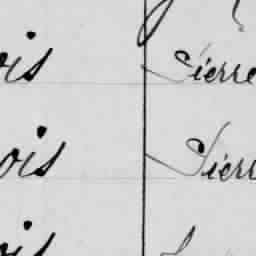 ois Pierre
ois Pierr
ois